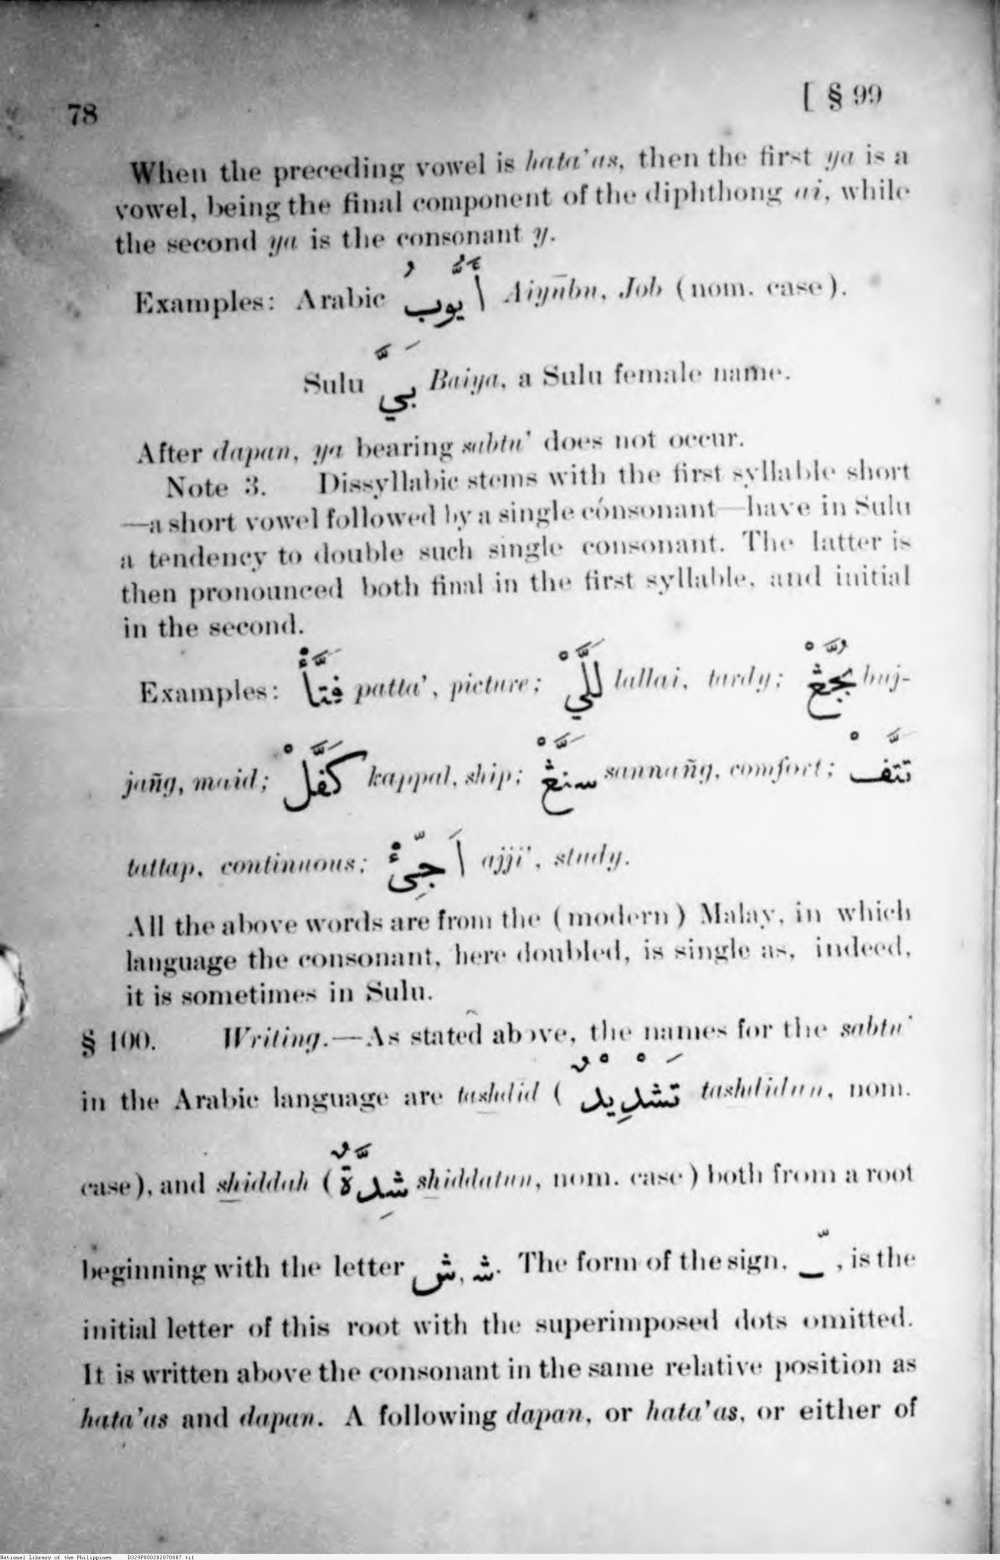 78
[ § 99
When the preceding vowel is hata'as, then the first ya is a
vowel, being the final component of the diphthong ai, while
the second ya is the consonant y.
Examples: Arabic أَيُّوبُ Aiyūbu, Job (nom. case).
Sulu بَيَّ Baiya, a Sulu female name.
After dapan, ya bearing sabtu' does not occur.
Note 3. Dissyllabic stems with the first syllable short
—a short vowel followed by a single consonant—have in Sulu
a tendency to double such single consonant. The latter is
then pronounced both final in the first syllable, and initial
in the second.
Examples: فَتَّأْ patta', picture; لَلَّيْ lallai, tardy; بُجَّڠْ buj-
jañg, maid; كَفَّلْ kappal, ship; سَنَّڠْ sannañg, comfort; تَتَّفْ
tattap, continuous; اَجِّئْ ajji', study.
All the above words are from the (modern) Malay, in which
language the consonant, here doubled, is single as, indeed,
it is sometimes in Sulu.
§ 100. Writing.—As stated above, the names for the sabtu'
in the Arabic language are tashdīd ( تَشْدِيْدٌ tashdīdun, nom.
case), and shiddah ( شِدَّةٌ shiddatun, nom. case) both from a root
beginning with the letter ش, شـ. The form of the sign, ـّ , is the
initial letter of this root with the superimposed dots omitted.
It is written above the consonant in the same relative position as
hata'as and dapan. A following dapan, or hata'as, or either of
National Library of the Philippines